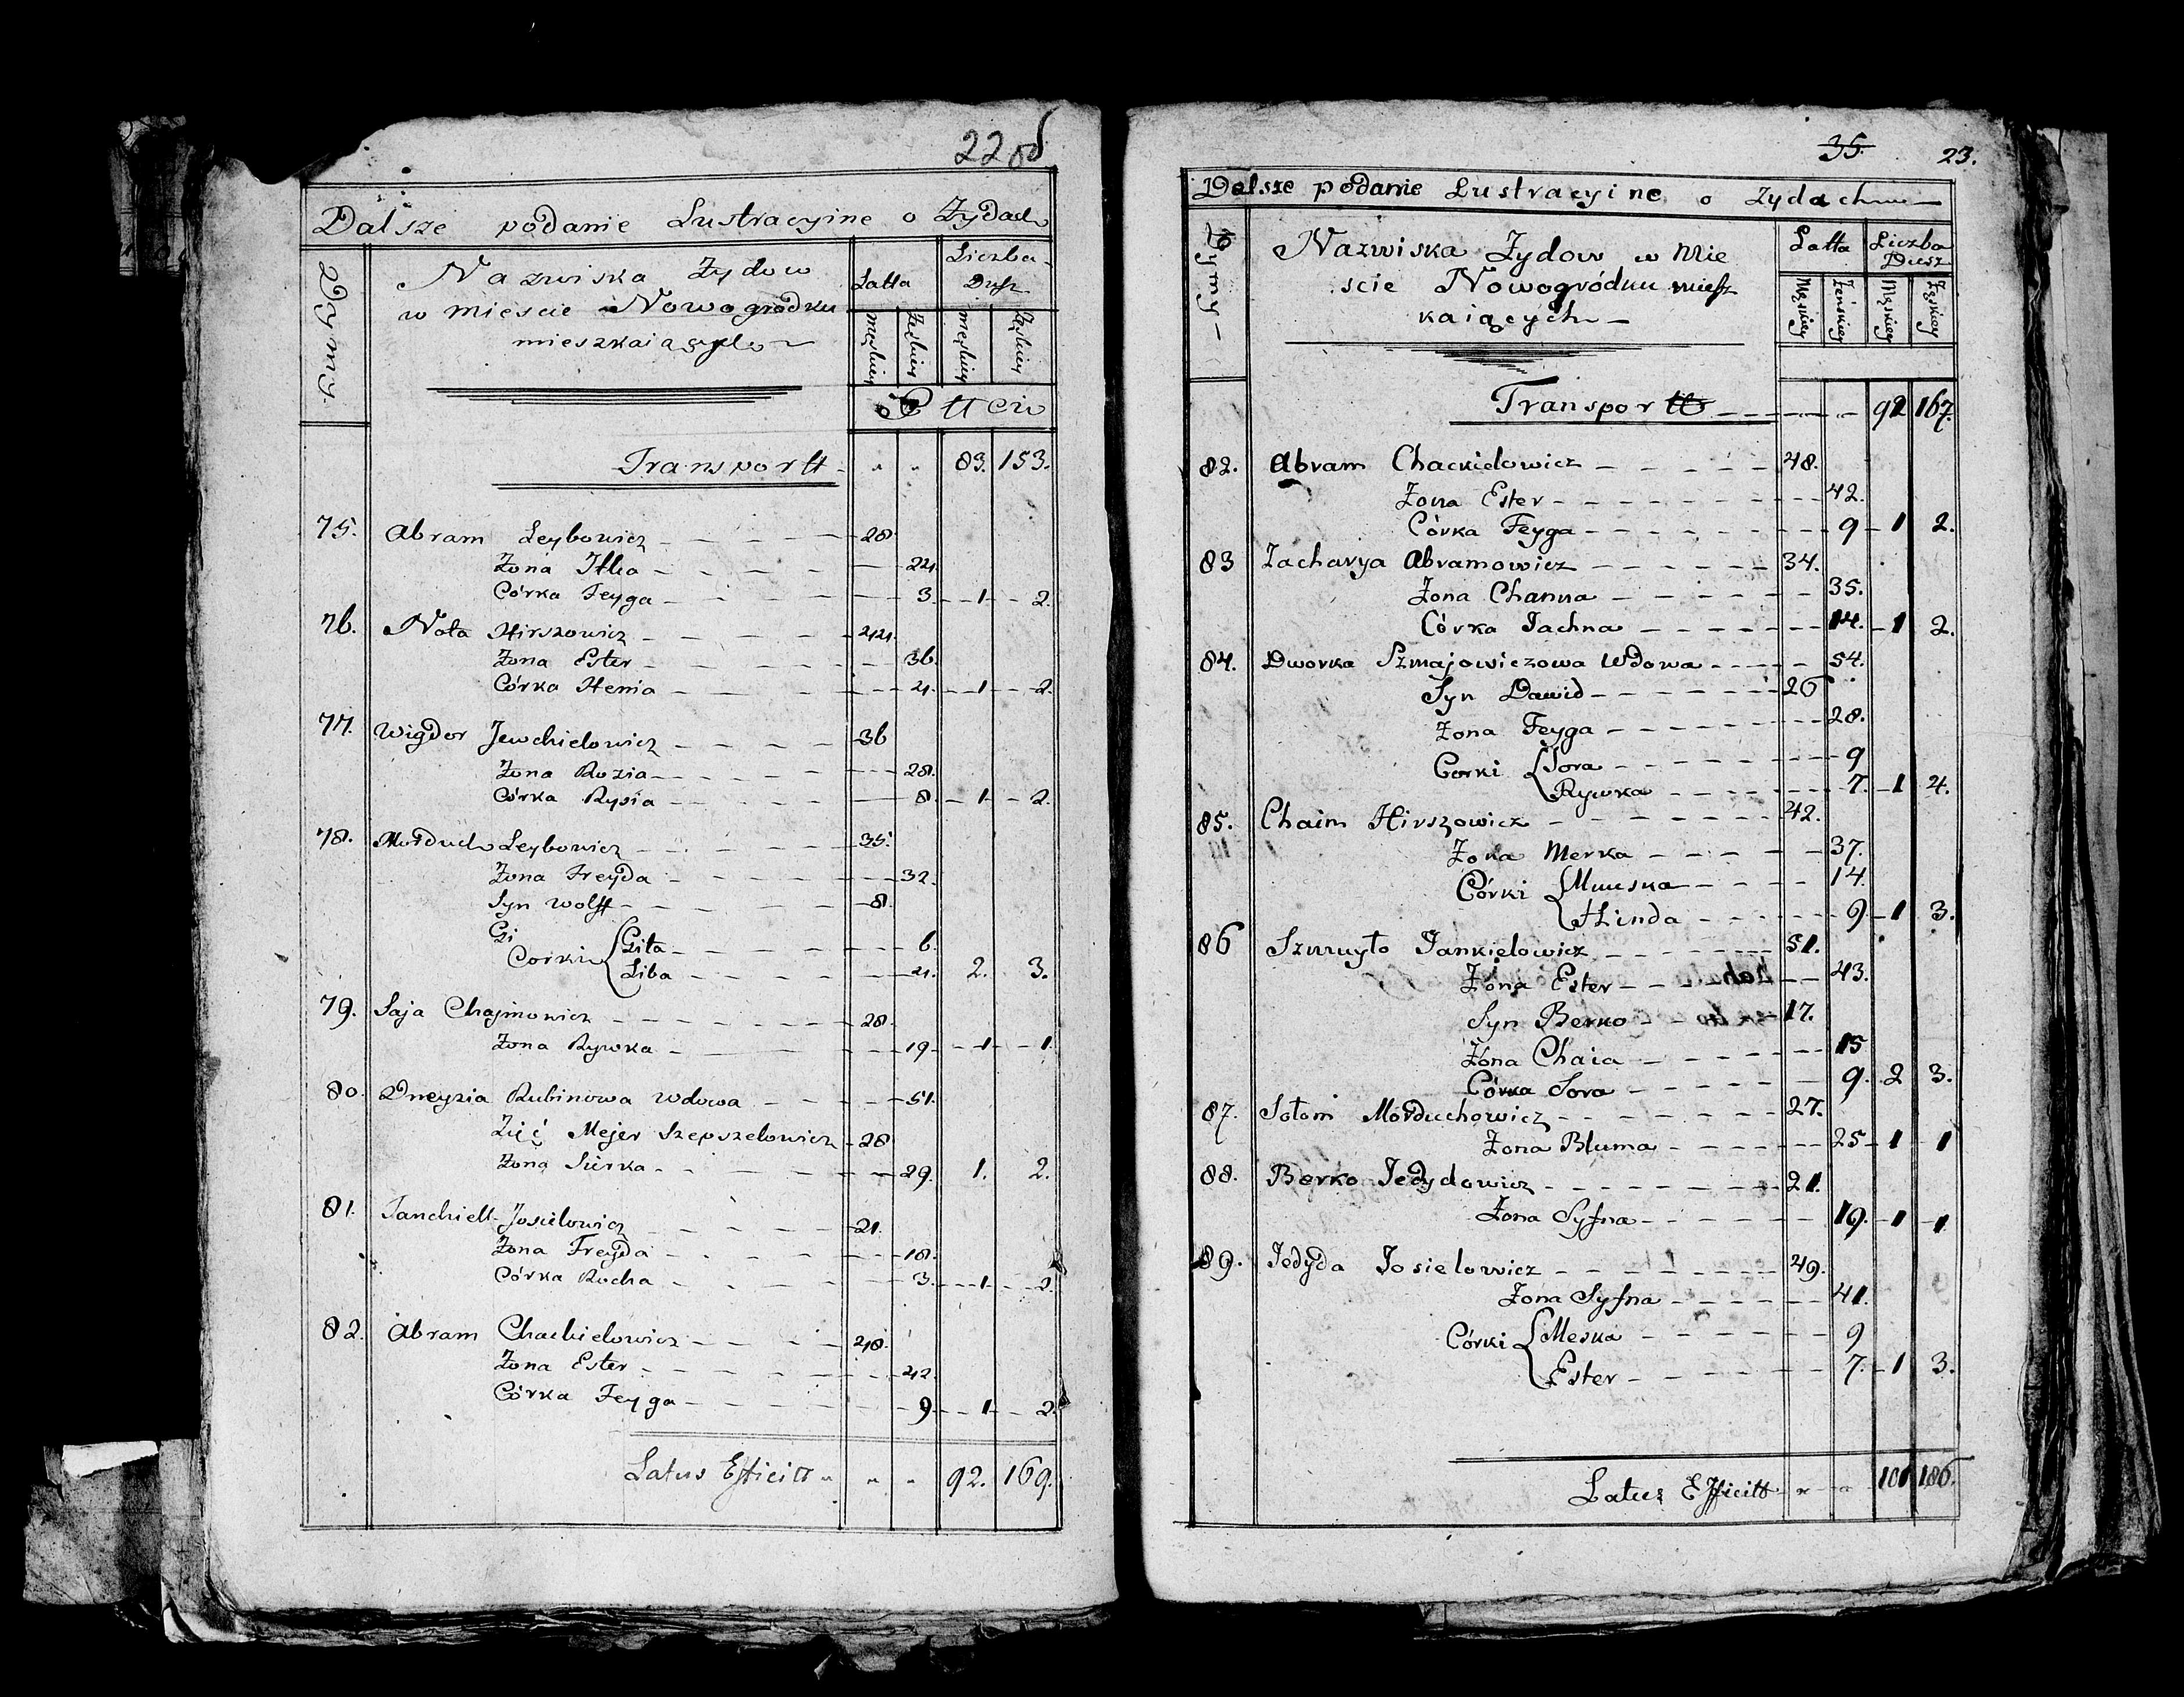 22 об
Dalsze podanie Lustracyine o Żydach
Dymy.
Nazwiska Żydow
w mieście Nowogródku
mieszkaiących
Latta
Liczba Dusz
męskiey żęskiey męskiey żęskiey
Transportt - " " 83. 153.
75. Abram Leybowicz 28
Żona Itka 24.
Córka Feyga 3. 1 2.
76. Nota Hirszowicz 44.
Żona Ester 36.
Córka Henia 4. 1 2.
77. Wigdor Jewchielowicz 36
Żona Rozia 28.
Córka Rysia 8. 1 2.
78. Morduch Leybowicz 35.
Żona Freyda 32.
Syn Wolff 8.
Gi
Corki Gita 6.
Liba 4. 2. 3.
79. Saja Chajmowicz 28.
Żona Rywka 19 1 1.
80. Dneyzia Rubinowa Wdowa 51.
Zięć Mejer Szepszelowicz 28
Żona Sierka 29. 1. 2.
81. Janchiell Josielowicz 21.
Żona Freyda 18.
Córka Rocha 3. 1 2.
82. Abram Chackielowicz 48.
Żona Ester 42.
Córka Feyga 9. 1 2.
Latus Efficitt " " " 92. 169.
35. 23.
Dalsze podanie Lustracyine o Zydach
Dymy
Nazwiska Żydow w Mie
scie Nowogródku miesz
kaiących
Latta
Liczba Dusz
Męskiey Żeńskiey Męskiey Żęskiey
Transportt 92 167.
82. Abram Chackielowicz 48.
Żona Ester 42.
Córka Feyga 9 1 2.
83 Zacharya Abramowicz 34.
Żona Channa 35.
Córka Jachna 14. 1 2.
84. Dworka Szmajowiczowa Wdowa 54.
Syn Dawid 26
Żona Feyga 28.
Corki Sora 9
Rywka 7. 1 4.
85. Chaim Hirszowicz 42.
Żona Merka 37.
Córki Mnuska 14.
Hinda 9 1 3.
86 Szmuyło Jankielowicz 51.
Żona Ester 43.
Syn Berko 17.
Żona Chaia 15
Córka Sora 9. 2 3.
87. Sołom Morduchowicz 27.
Żona Bluma 25 1 1
88. Berko Jedydowicz 21.
Żona Syfna 19. 1 1
89. Jedyda Josielowicz 49.
Żona Syfna 41.
Córki Meska 9
Ester 7. 1 3.
Latus Efficitt " " 101 186.